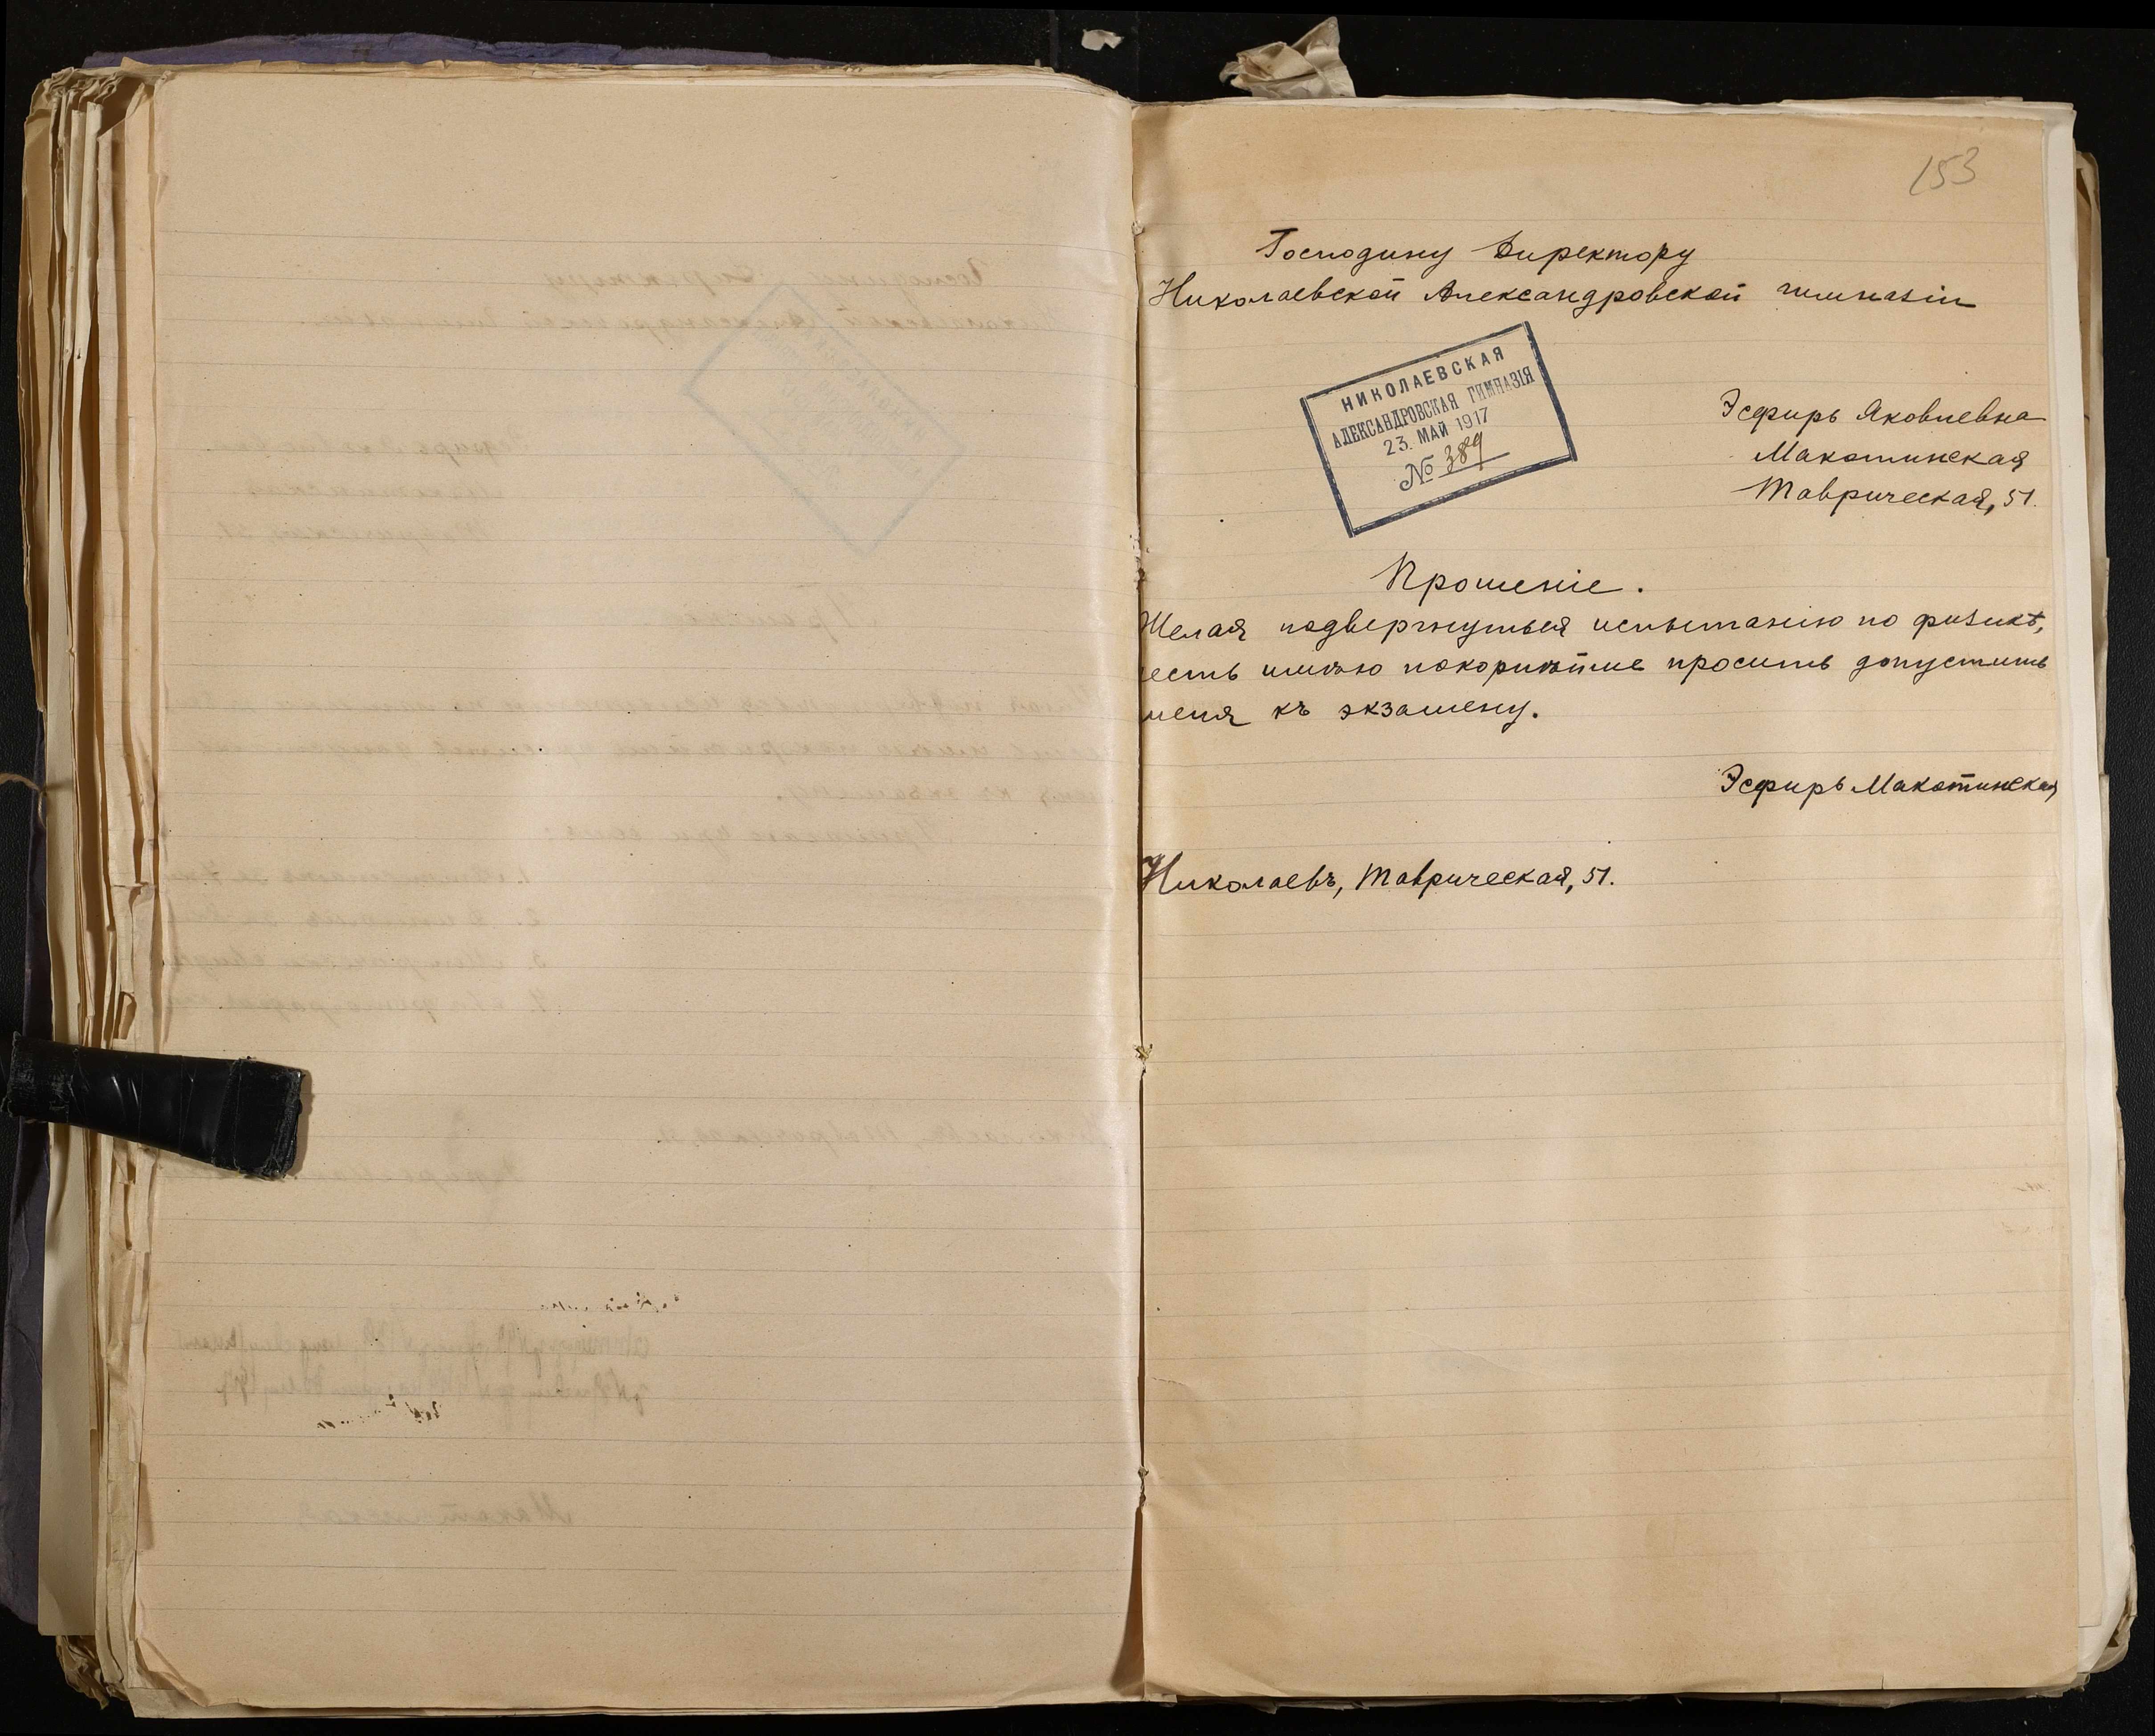 153
Господину Директору
Николаевской Александровской гимназіи
НИКОЛАЕВСКАЯ
АЛЕКСАНДРОВСКАЯ ГИМНАЗІЯ
23. МАЙ 1917
№ 389
Эсфирь Яковлевна
Макотинская
Таврическая, 51.
Прошеніе.
Желая подвергнуться испытанію по физикѣ,
честь имѣю покорнѣйше просить допустить
меня къ экзамену.
Эсфирь Макотинская
Николаевъ, Таврическая, 51.